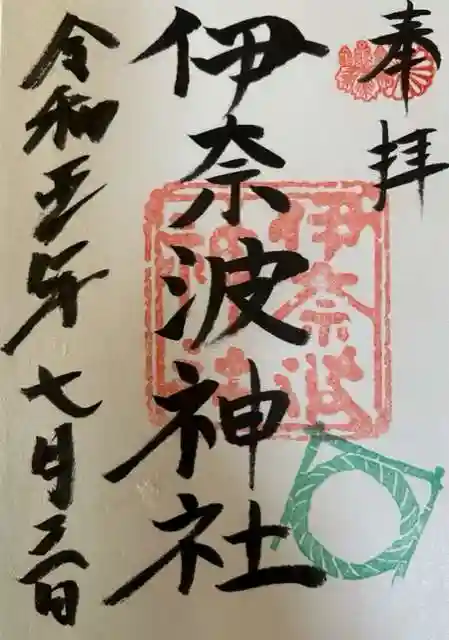 奉拝
伊奈波神社
伊奈波
神社
令和五年七月日